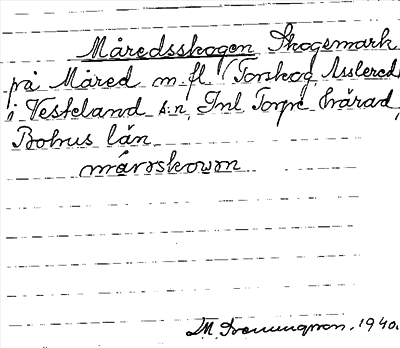 Måredsskogen Skogsmark
på Måred m.fl. (Torskog, Asslered
i Vesteland s:n, Inl Torpe härad,
Bohus län
mårrskowm
M. 1940.